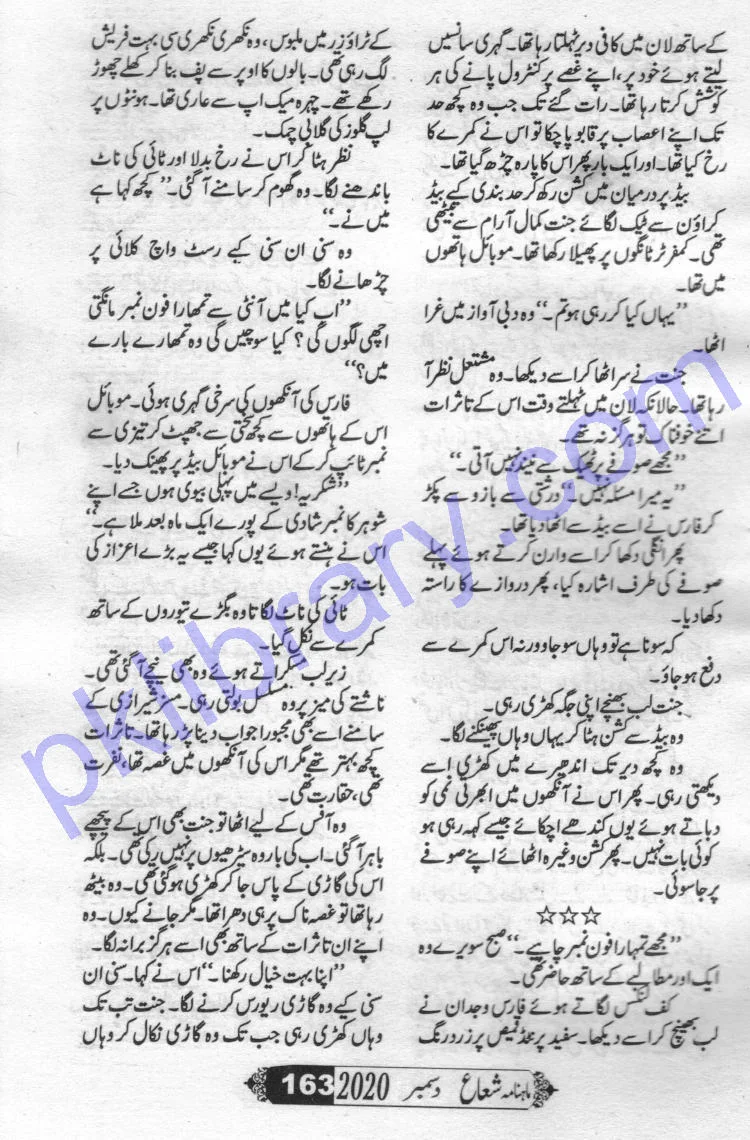 کے ساتھ لان میں کافی دیر ٹہلتا رہا تھا۔ گہری سانسیں
لیتے ہوئے خود پر، اپنے غصے پر کنٹرول پانے کی ہر
کوشش کرتا رہا تھا۔ رات گئے تک جب وہ کچھ حد
تک اپنے اعصاب پر قابو پا چکا تو اس نے کمرے کا
رخ کیا تھا۔ اور ایک بار پھر اس کا پارہ چڑھ گیا تھا۔
بیڈ پر درمیان میں کشن رکھ کر حد بندی کیے بیڈ
کراؤن سے ٹیک لگائے جنت کمال آرام سے بیٹھی
تھی۔ کمفرٹر ٹانگوں پر پھیلا رکھا تھا۔ موبائل ہاتھوں
میں تھا۔
”یہاں کیا کر رہی ہو تم۔“ وہ دبی آواز میں غرا
اٹھا۔
جنت نے سر اٹھا کر اسے دیکھا۔ وہ مشتعل نظر آ
رہا تھا۔ حالانکہ لان میں ٹہلتے وقت اس کے تاثرات
اتنے خوفناک تو ہرگز نہ تھے۔
”مجھے صوفے پر ٹھیک سے نیند نہیں آتی۔“
”یہ میرا مسئلہ نہیں!“ درشتی سے بازو سے پکڑ
کر فارس نے اسے بیڈ سے اٹھا دیا تھا۔
پھر انگلی دکھا کر اسے وارن کرتے ہوئے پہلے
صوفے کی طرف اشارہ کیا، پھر دروازے کا راستہ
دکھا دیا۔
کہ سونا ہے تو وہاں سو جاؤ ورنہ اس کمرے سے
دفع ہو جاؤ۔
جنت لب بھینچے اپنی جگہ کھڑی رہی۔
وہ بیڈ سے کشن ہٹا کر یہاں وہاں پھینکنے لگا۔
وہ کچھ دیر تک اندھیرے میں کھڑی اسے
دیکھتی رہی۔ پھر اس نے آنکھوں میں ابھرتی نمی کو
دباتے ہوئے یوں کندھے اچکائے جیسے کہہ رہی ہو
کوئی بات نہیں۔ پھر کشن وغیرہ اٹھائے اپنے صوفے
پر جا سوئی۔
☆☆☆
”مجھے تمہارا فون نمبر چاہیے۔“ صبح سویرے وہ
ایک اور مطالبے کے ساتھ حاضر تھی۔
کف لنکس لگاتے ہوئے فارس وجدان نے
لب بھینچ کر اسے دیکھا۔ سفید پرنٹڈ قمیص پر زرد رنگ
کے ٹراؤزر میں ملبوس، وہ نکھری نکھری سی بہت فریش
لگ رہی تھی۔ بالوں کا اوپر سے پف بنا کر کھلے چھوڑ
رکھے تھے۔ چہرہ میک اپ سے عاری تھا۔ ہونٹوں پر
لپ گلوز کی گلابی چمک۔
نظر ہٹا کر اس نے رخ بدلا اور ٹائی کی ناٹ
باندھنے لگا۔ وہ گھوم کر سامنے آ گئی۔ ”کچھ کہا ہے
میں نے۔“
وہ سنی ان سنی کیے رسٹ واچ کلائی پر
چڑھانے لگا۔
”اب کیا میں آنٹی سے تمہارا فون نمبر مانگتی
اچھی لگوں گی؟ کیا سوچیں گی وہ تمہارے بارے
میں؟“
فارس کی آنکھوں کی سرخی گہری ہوئی۔ موبائل
اس کے ہاتھوں سے کچھ سختی سے جھپٹ کر تیزی سے
نمبر ٹائپ کر کے اس نے موبائل بیڈ پر پھینک دیا۔
”شکریہ! ویسے میں پہلی بیوی ہوں جسے اپنے
شوہر کا نمبر شادی کے پورے ایک ماہ بعد ملا ہے۔“
اس نے ہنستے ہوئے یوں کہا جیسے یہ بڑے اعزاز کی
بات ہو۔
ٹائی کی ناٹ لگاتا وہ بگڑے تیوروں کے ساتھ
کمرے سے نکل گیا۔
زیر لب مسکراتے ہوئے وہ بھی نیچے آ گئی تھی۔
ناشتے کی میز پر وہ مسلسل بولتی رہی۔ مسز شیرازی کے
سامنے اسے بھی مجبوراً جواب دینا پڑ رہا تھا۔ تاثرات
کچھ بہتر تھے مگر اس کی آنکھوں میں غصہ تھا، نفرت
تھی، حقارت تھی۔
وہ آفس کے لیے اٹھا تو جنت بھی اس کے پیچھے
باہر آ گئی۔ اب کی بار وہ سیڑھیوں پر نہیں رکی تھی۔ بلکہ
اس کی گاڑی کے پاس جا کر کھڑی ہو گئی تھی۔ وہ بیٹھ
رہا تھا تو غصہ ناک پر ہی دھرا تھا۔ مگر جانے کیوں۔ وہ
اپنے ان تاثرات کے ساتھ بھی اسے ہرگز برا نہ لگا۔
”اپنا بہت خیال رکھنا۔“ اس نے کہا۔ سنی ان
سنی کیے وہ گاڑی ریورس کرنے لگا۔ جنت تب تک
وہاں کھڑی رہی جب تک وہ گاڑی نکال کر وہاں
ماہنامہ شعاع دسمبر 2020 163
pklibrary.com